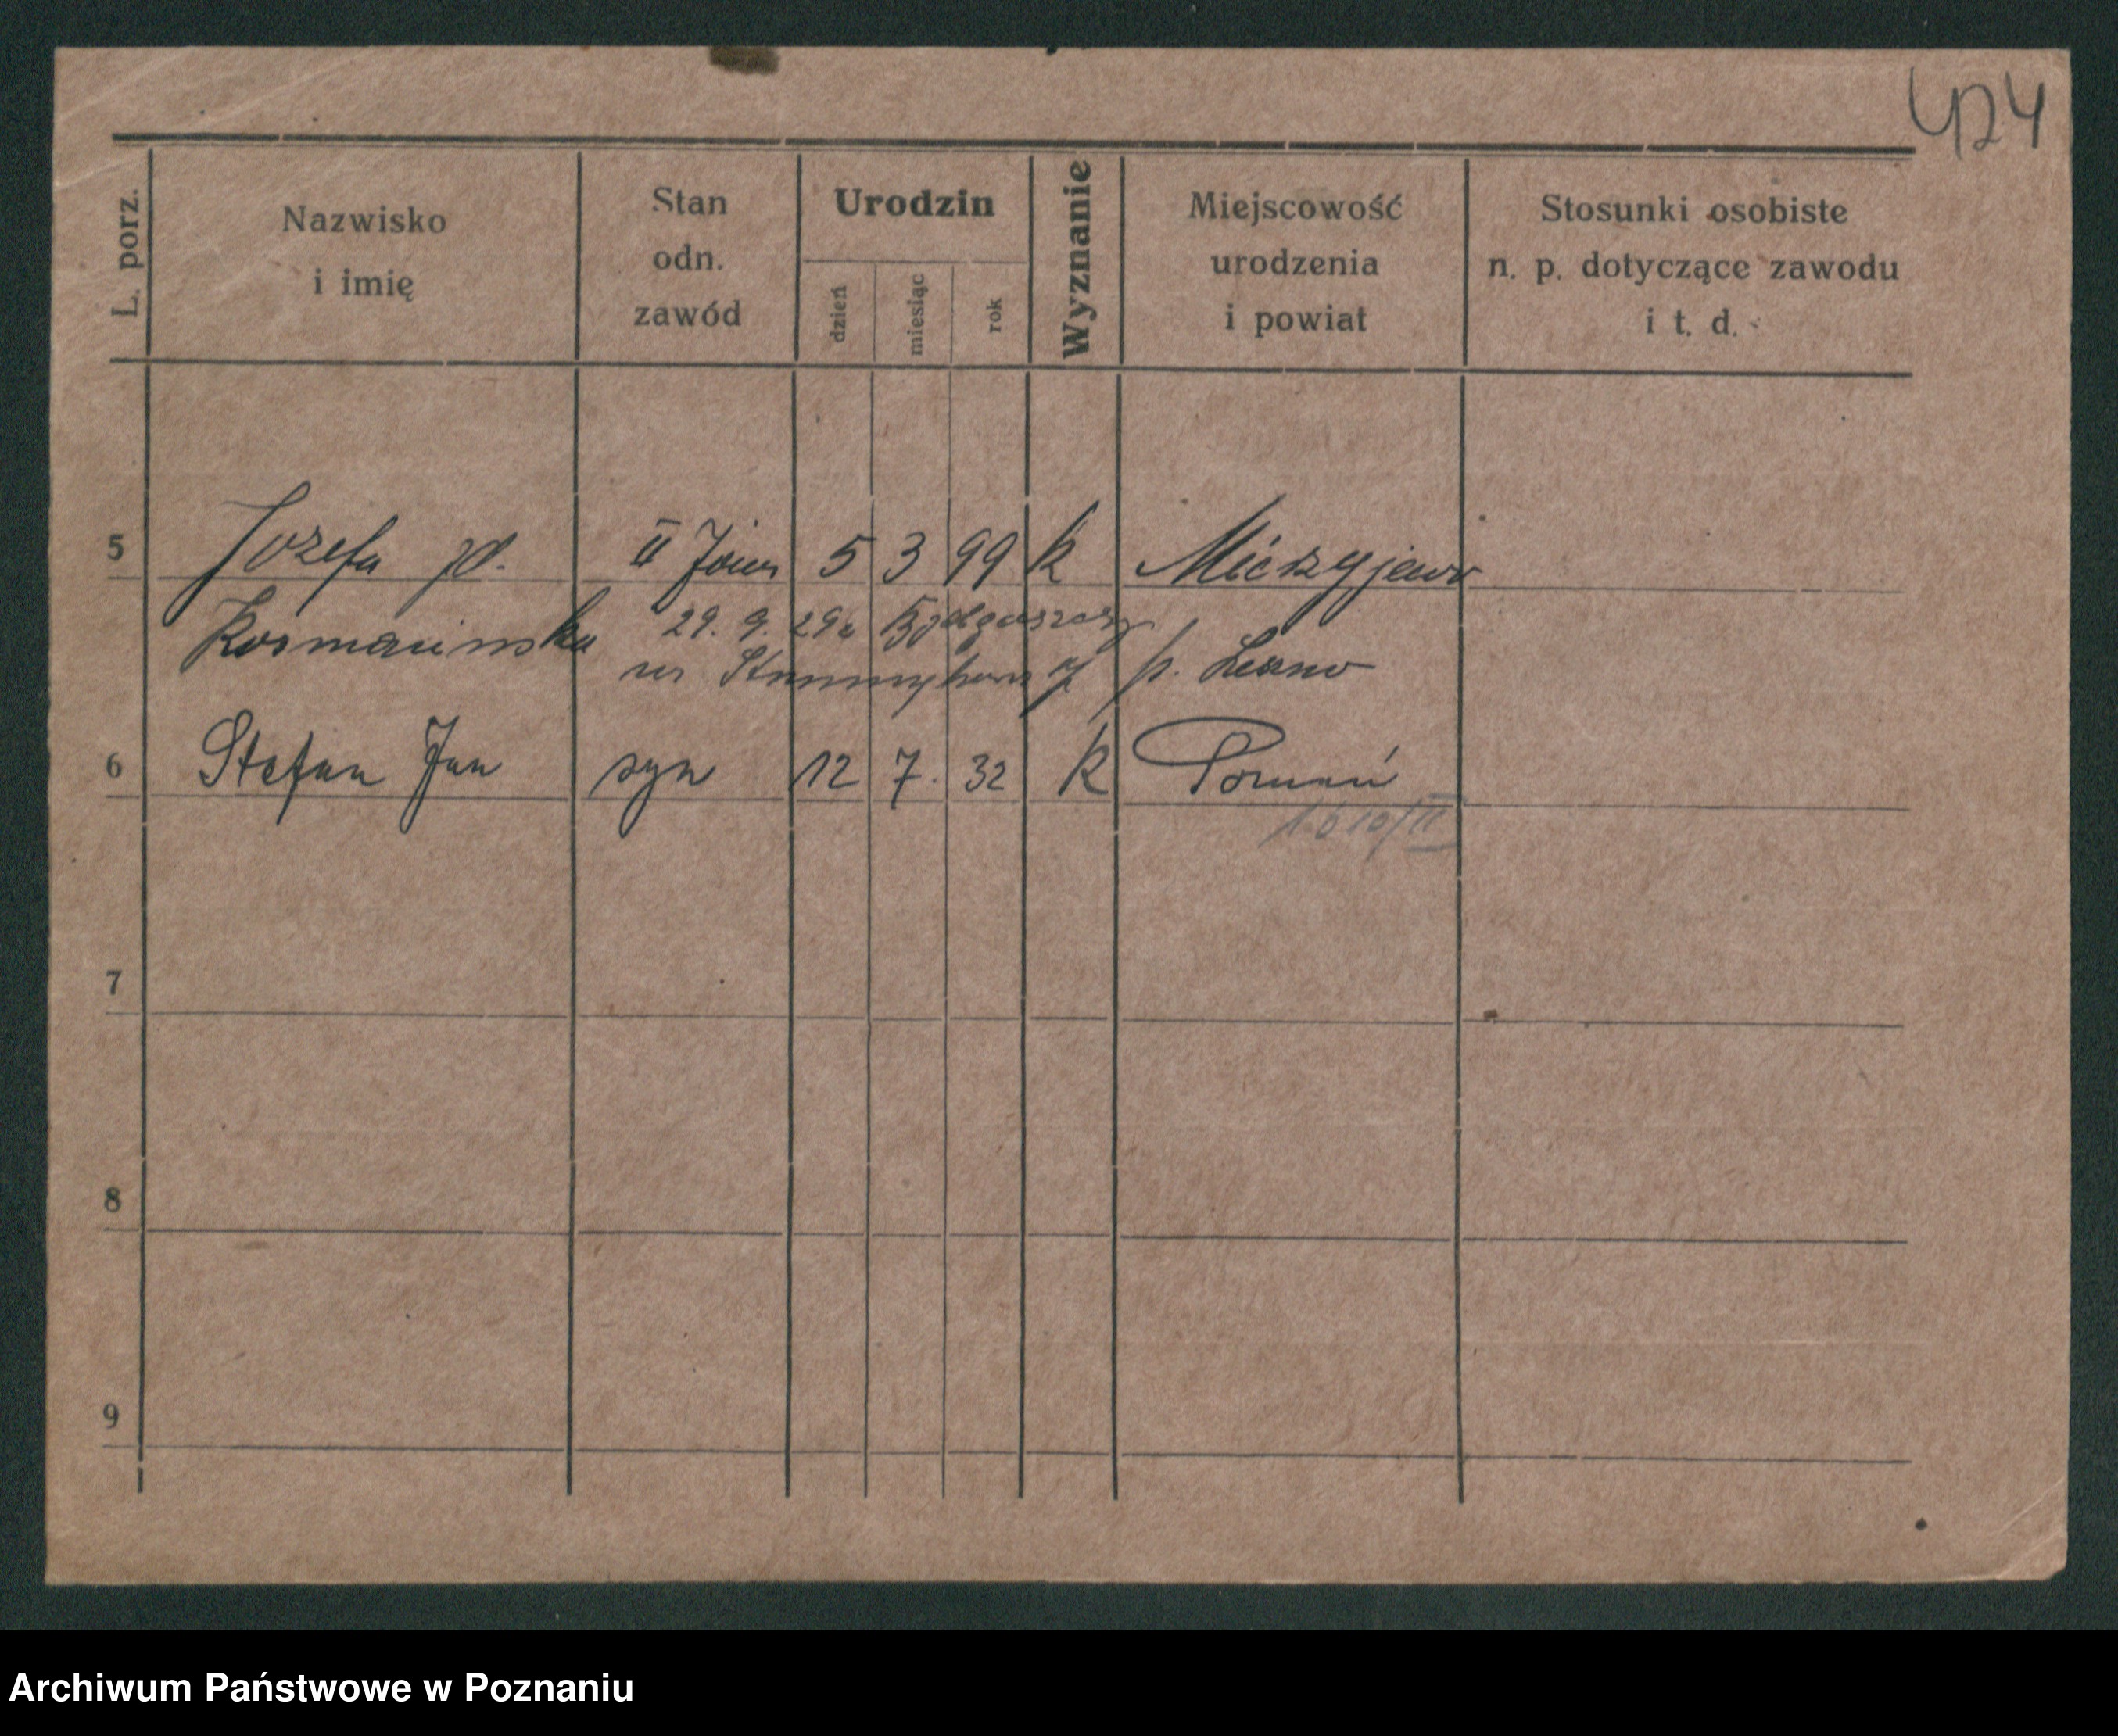 424
L. porz.
Nazwisko
i imię
Stan
odn.
zawód
Urodzin
dzień
miesiąc
rok
Wyznanie
Miejscowość
urodzenia
i powiat
Stosunki osobiste
n. p. dotyczące zawodu
i t. d.
5 Józefa II 5 3 99 k
29. 9. 29
p. Leszno
6 Stefan Jan syn 12 7. 32 k Poznań
7
8
9
Archiwum Państwowe w Poznaniu